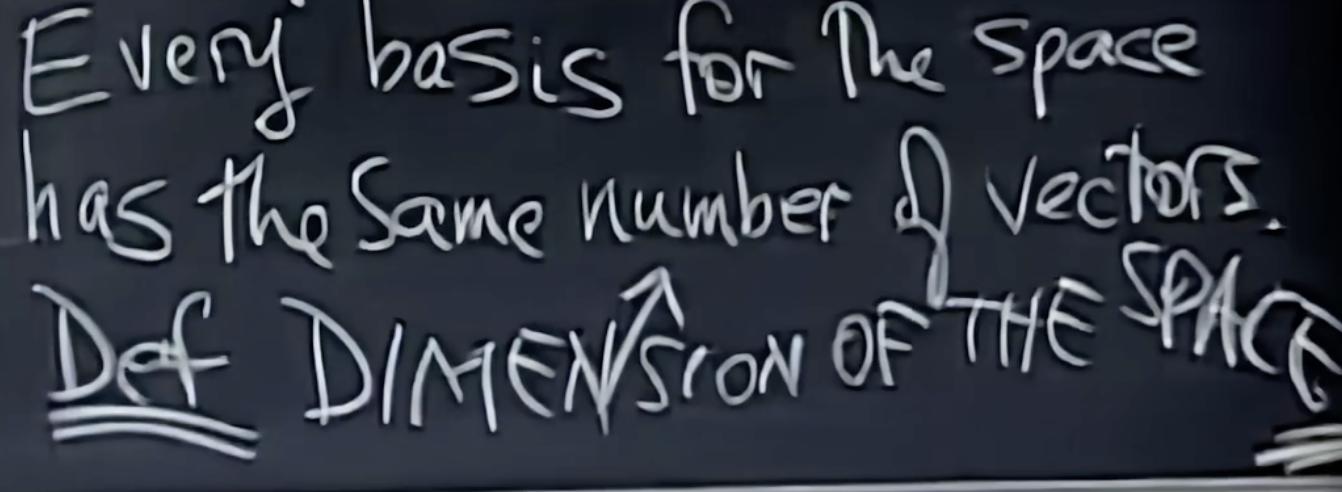 Every basis for the space
has the same number of vectors.
Def DIMENSION OF THE SPACE